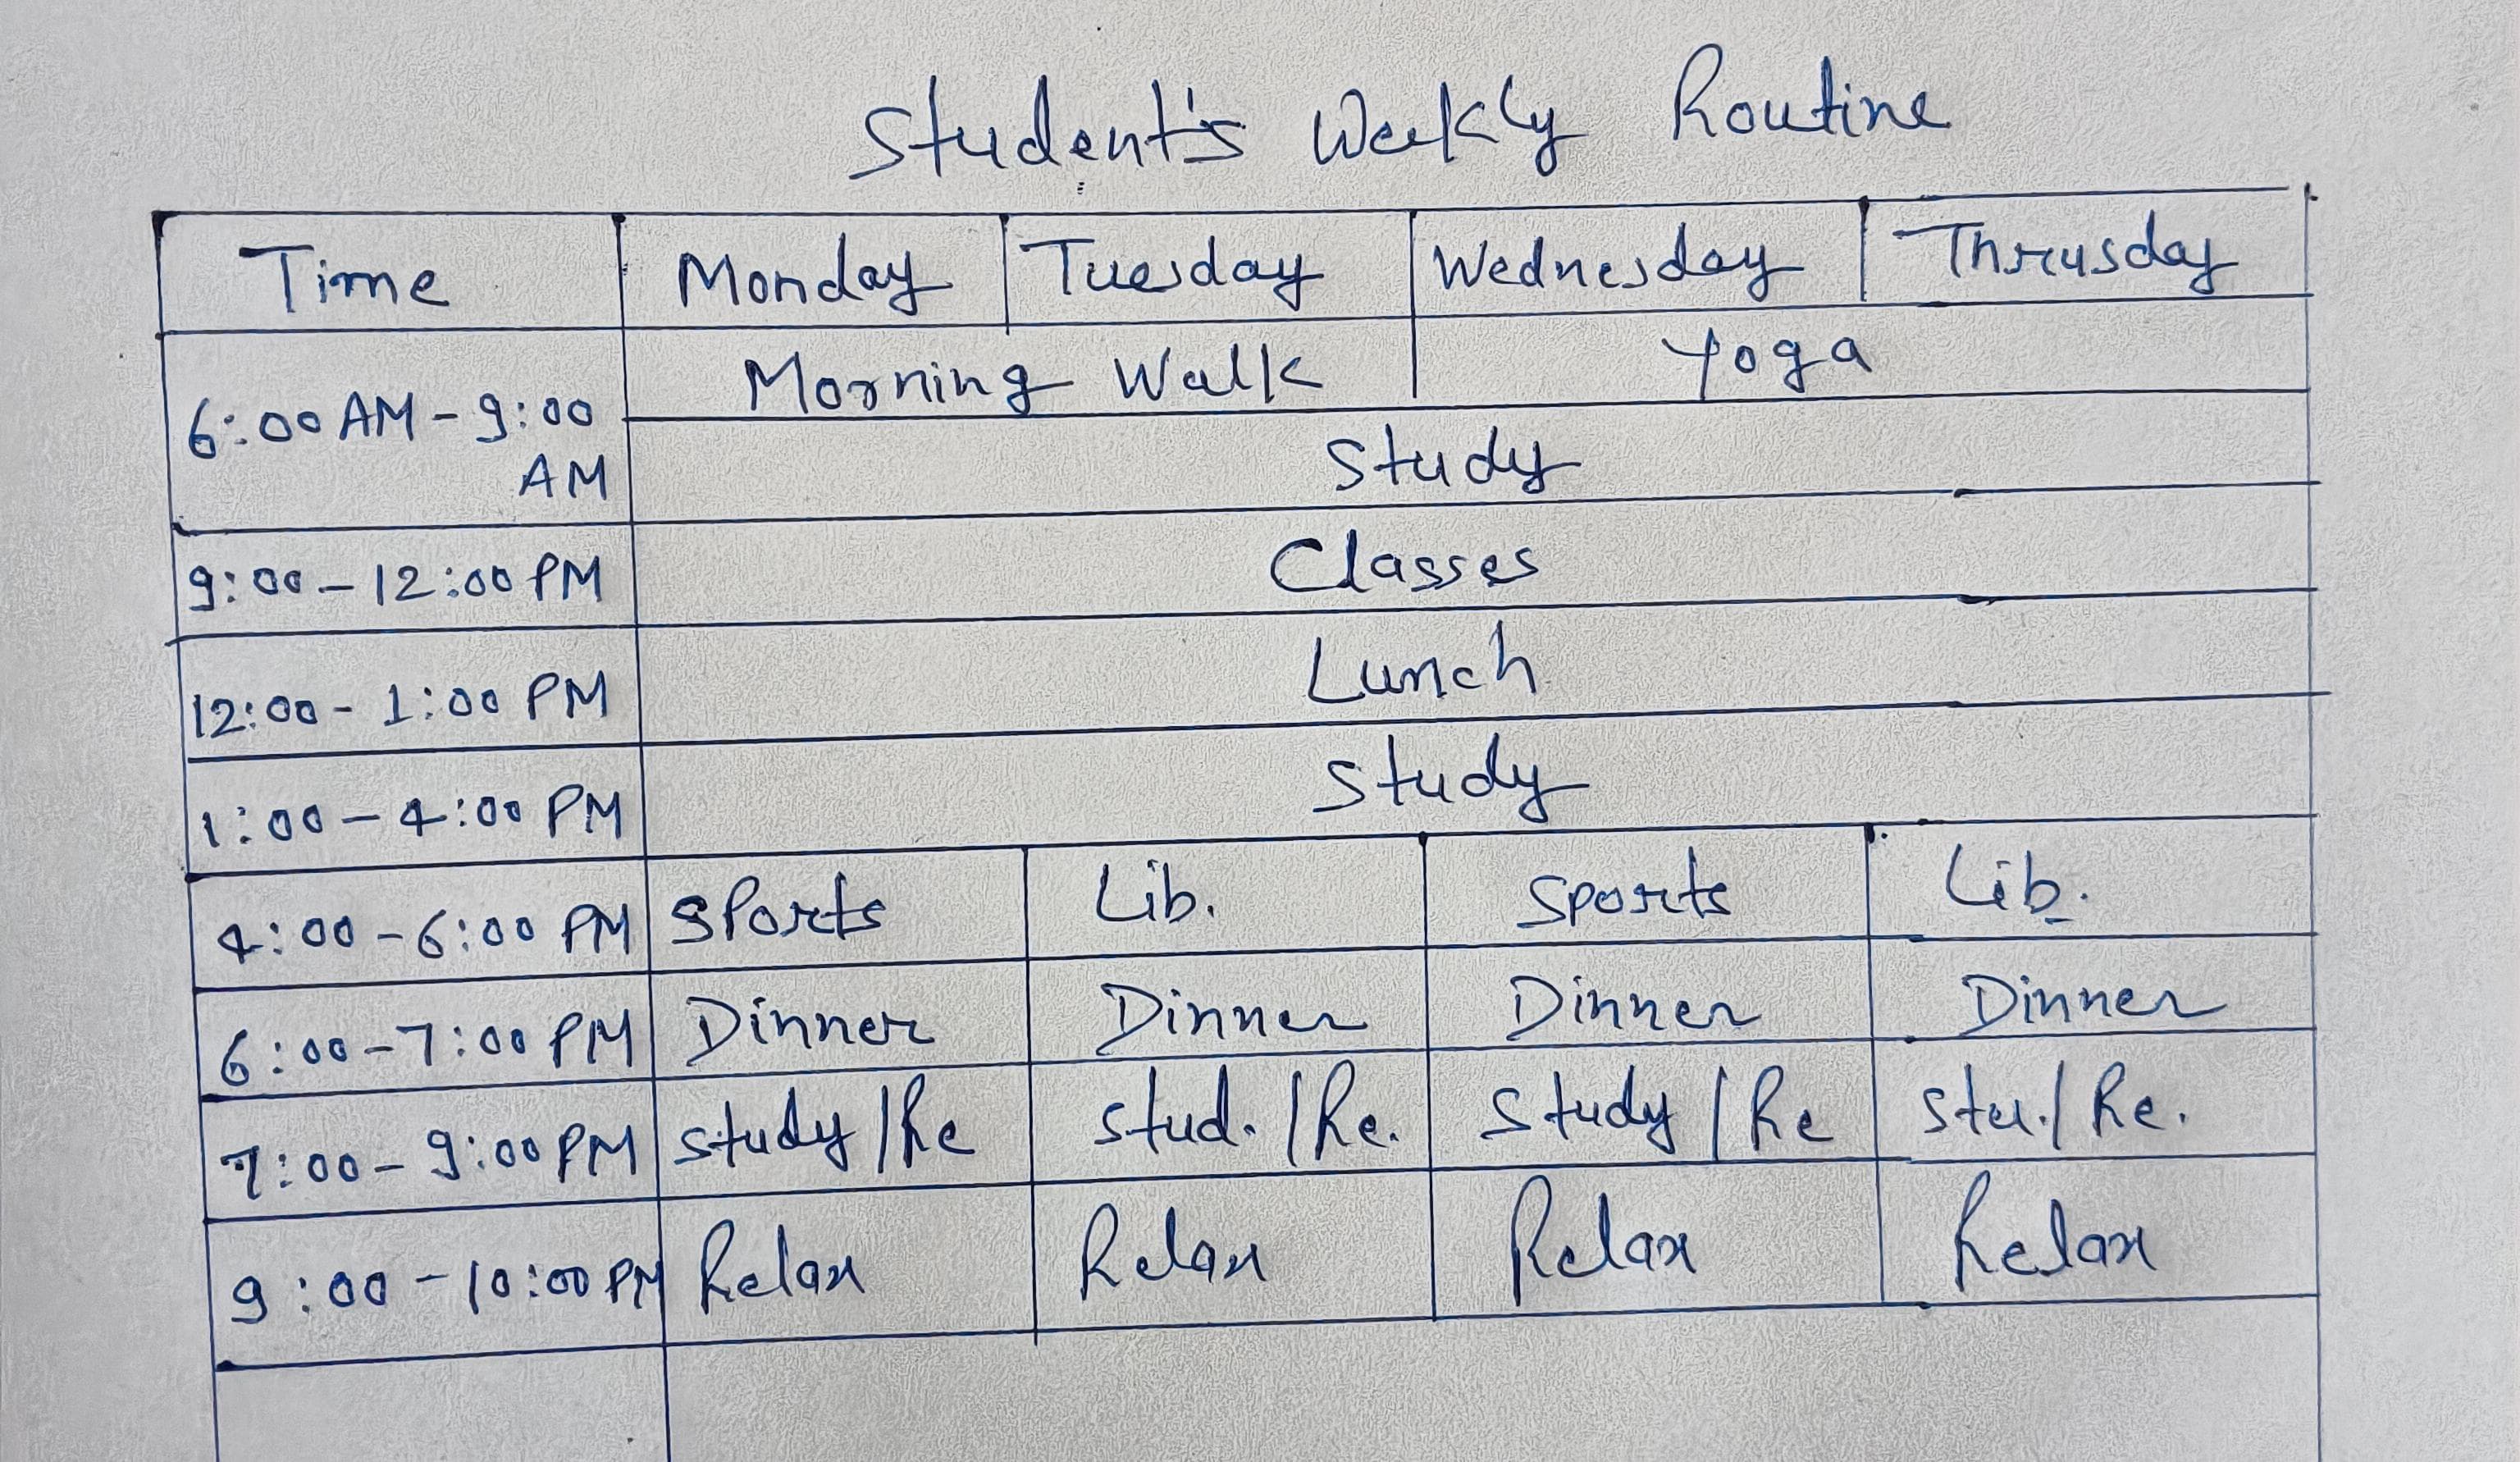 Student's Weekly Routine
Time Monday Tuesday Wednesday Thrusday
6:00 AM - 9:00 AM Morning Walk Yoga
Study
9:00 - 12:00 PM Classes
12:00 - 1:00 PM Lunch
1:00 - 4:00 PM Study
4:00 - 6:00 PM Sports Lib. Sports Lib.
6:00 - 7:00 PM Dinner Dinner Dinner Dinner
7:00 - 9:00 PM Study/Re Stud./Re. Study/Re Stu./Re.
9:00 - 10:00 PM Relax Relax Relax Relax